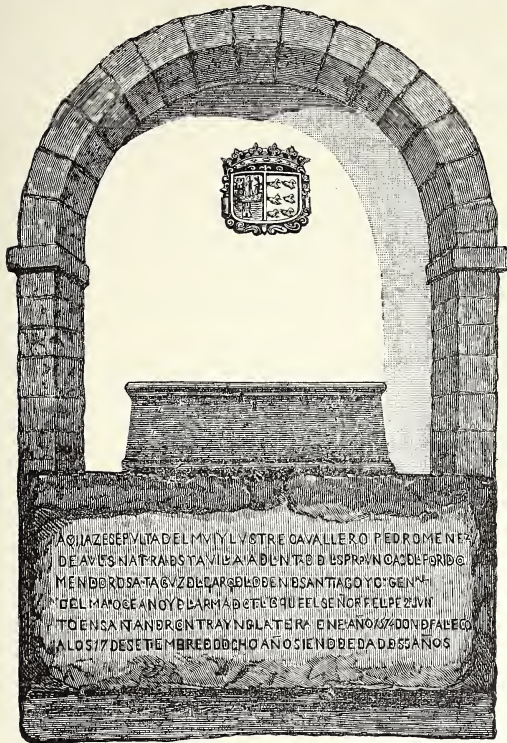 AQUIAZE SEPVLTA DEL MVI YLVSTRE CAVALLERO PEDRO MENEZ
DE AVILS NATRAL DSTA VILLA ADLNTADO D LSPROVNCAS DL FORIDO
MENDOR D SATA CVZ D L CARCA D LO DEN D SANTIAGO Y C GENAL
DEL MAR OCEANO Y DL ARMADA QUE EL SEÑOR FELPE 2º JVN
TO EN SANTANDR CNTRA YNGLATERA EN EL AÑO 1574 DOND FALLECO
A LOS 17 DE SETIEMBRE D DCHO AÑO SIENDO DE EDAD D 55 AÑOS